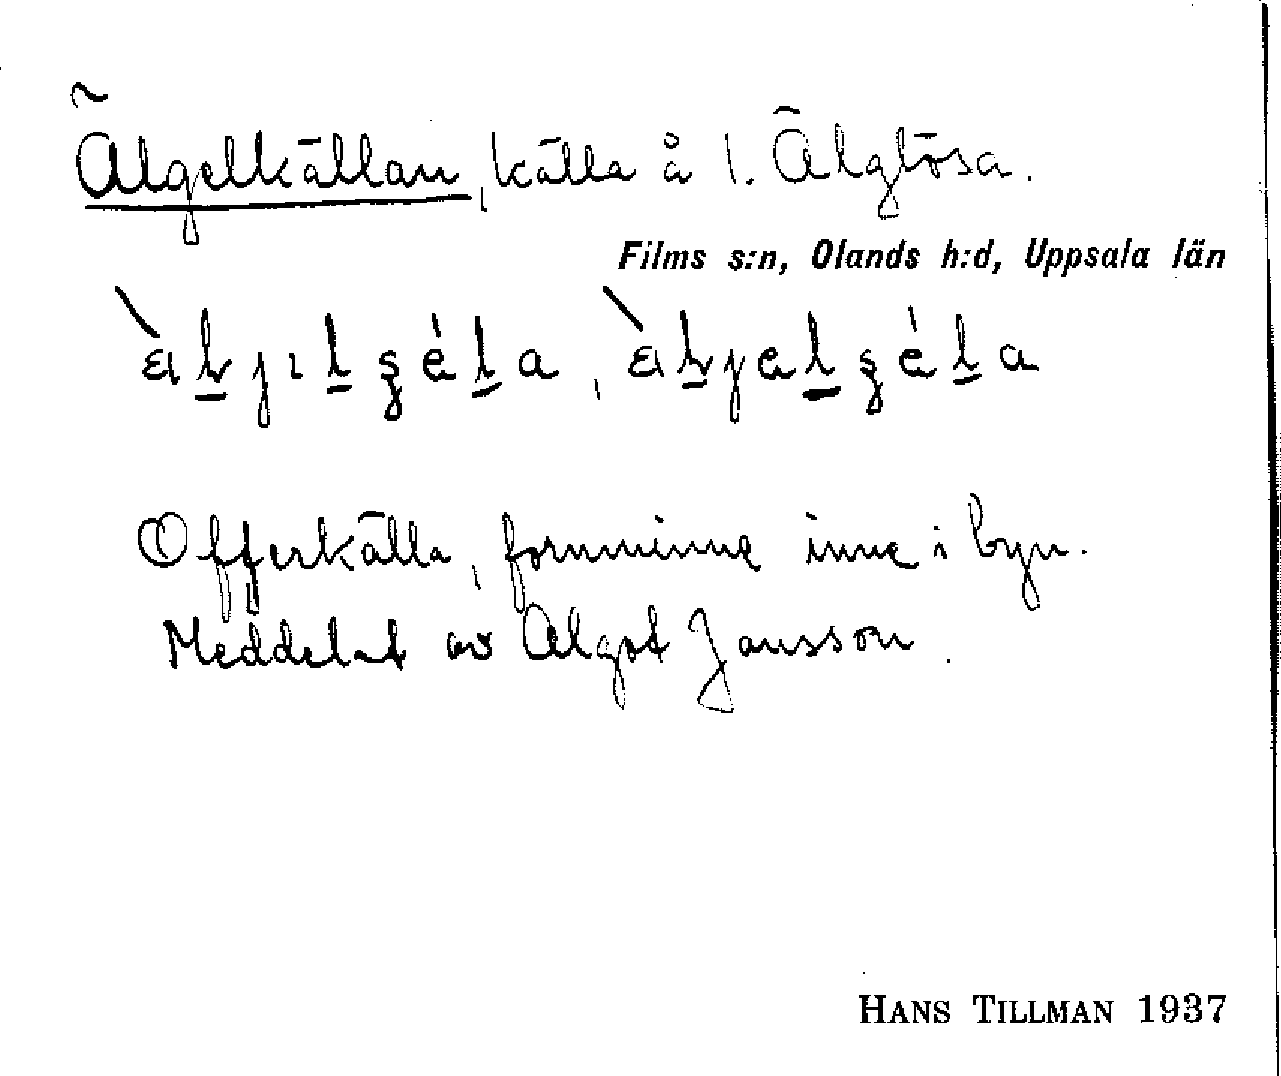 Älgelkällan, källa å 1. Älglösa.
Films s:n, Olands h:d, Uppsala län
Offerkälla, fornminne inne i byn.
Meddelat av Algot Jansson.
HANS TILLMAN 1937